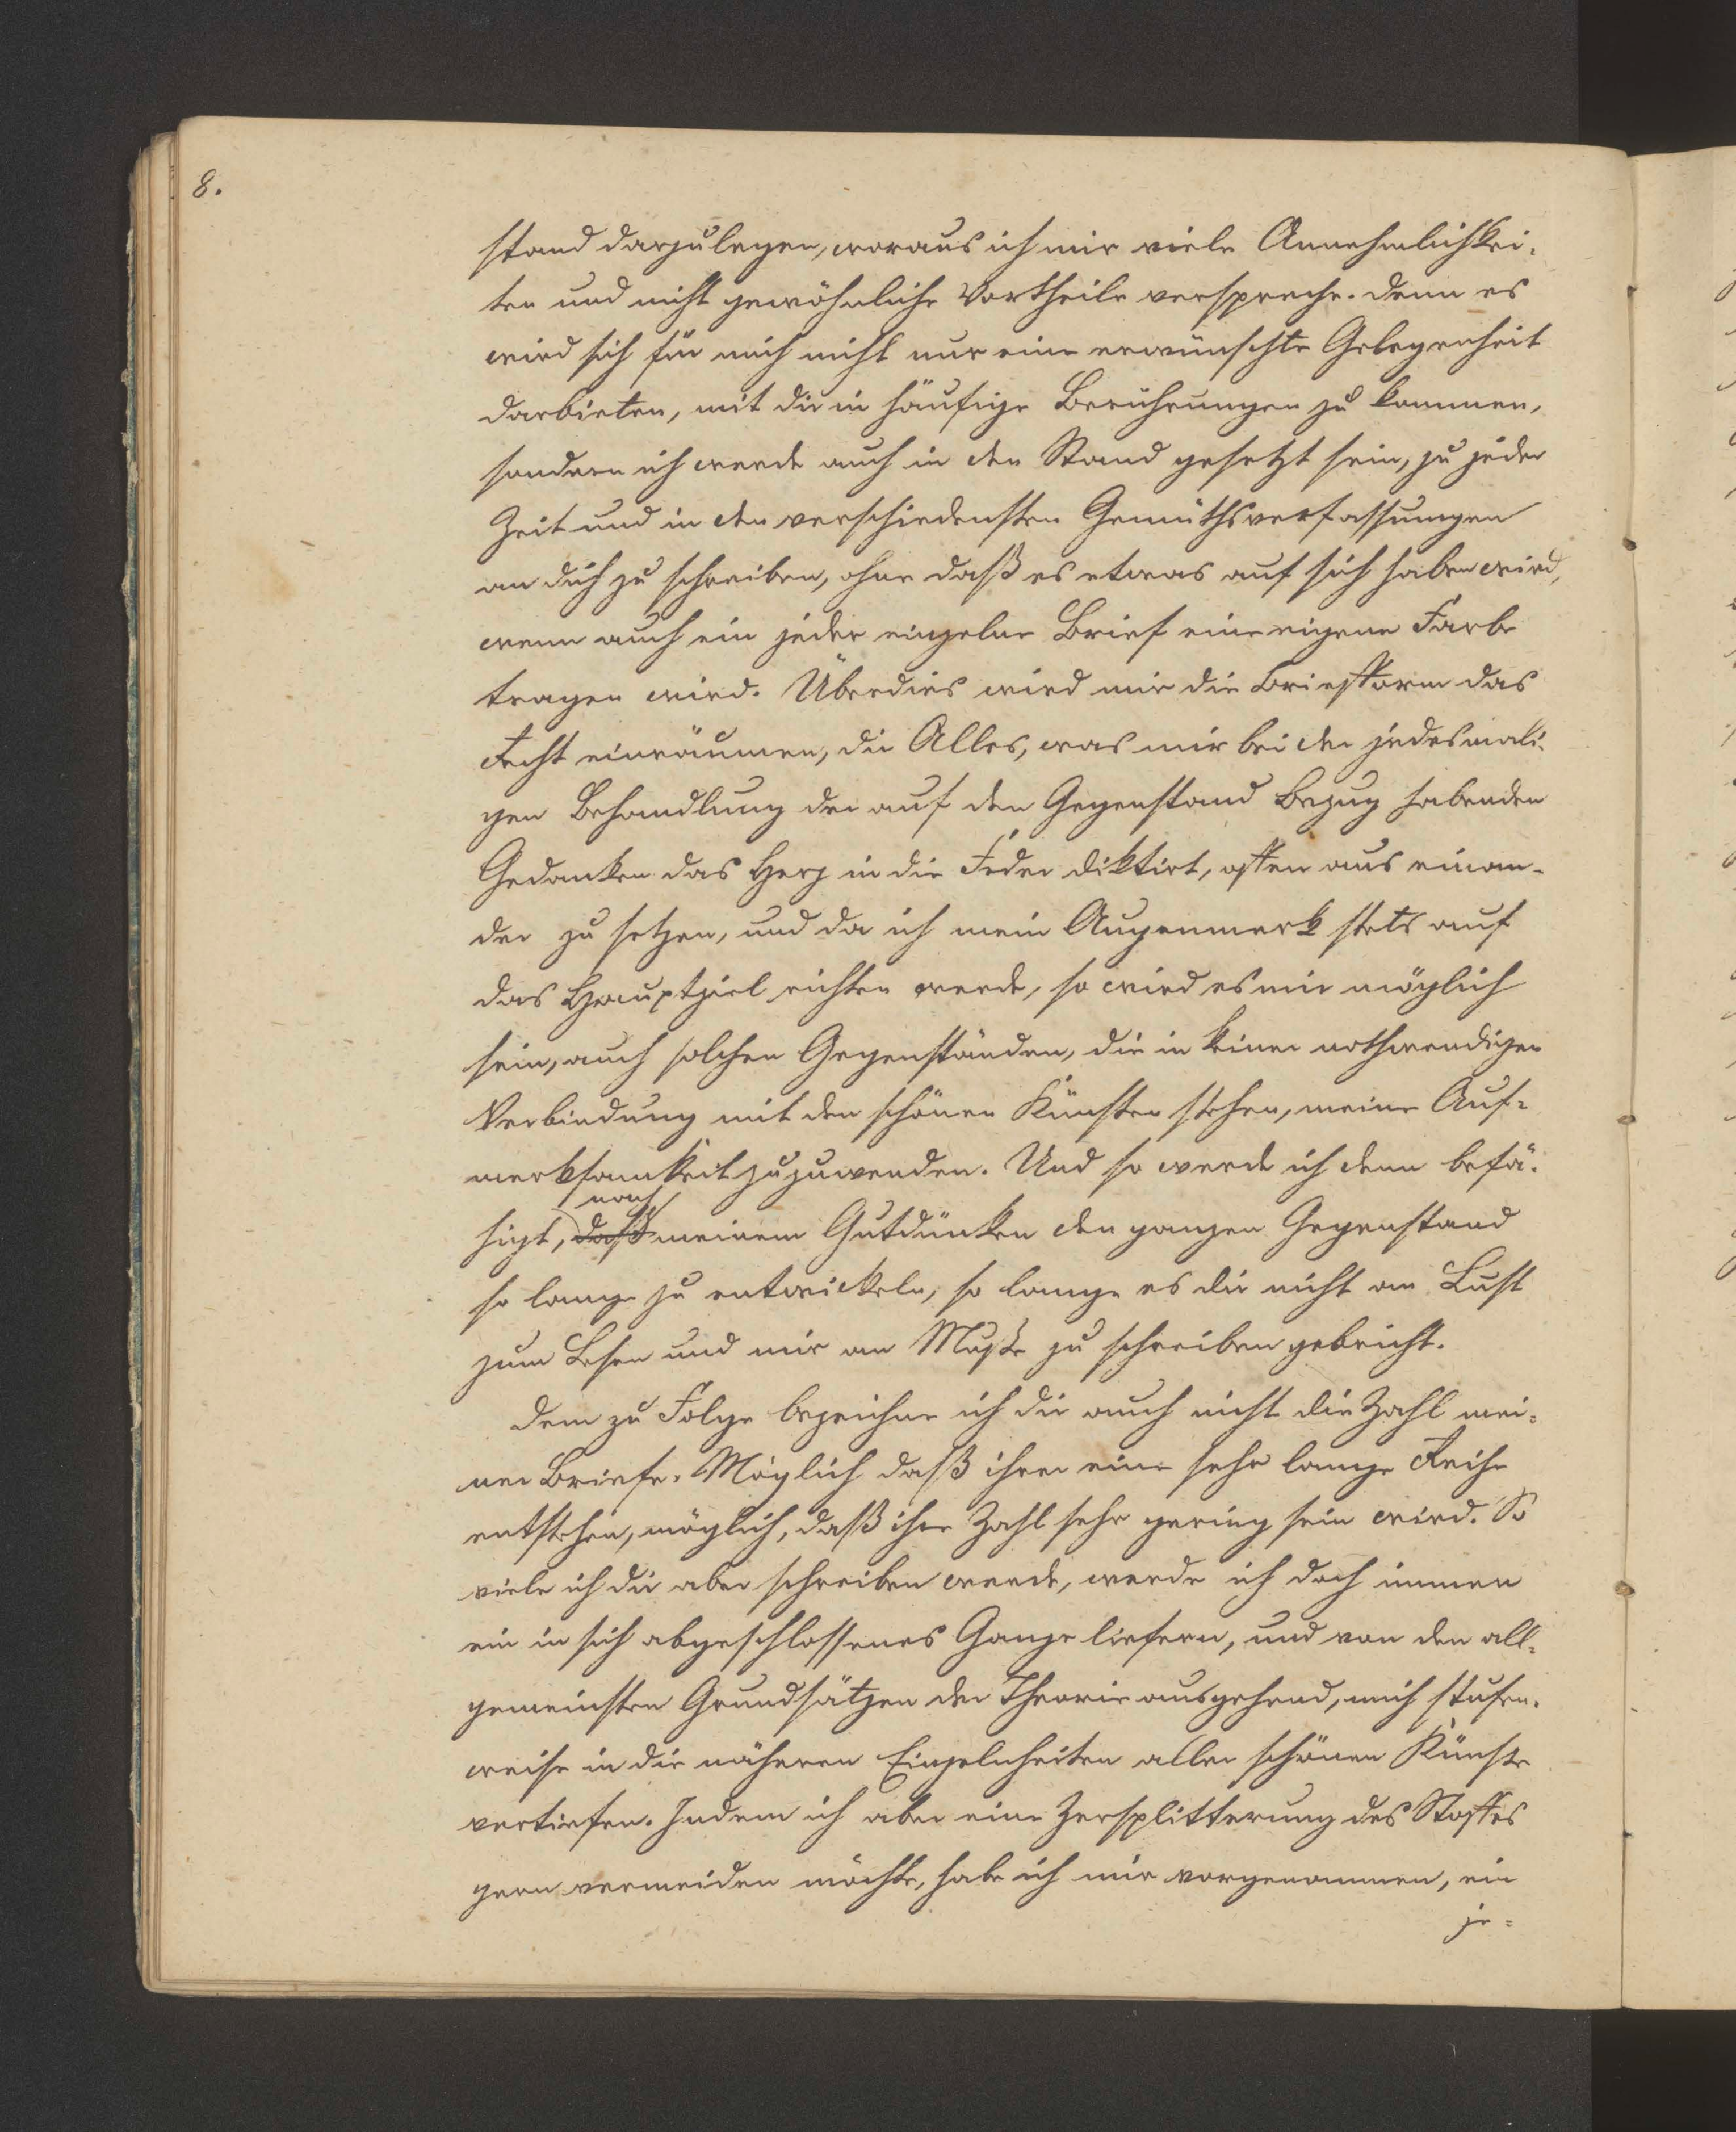 8.
stand darzulegen, woraus ich mir viele Annehmlichkei-
ten und nicht gewöhnliche Vortheile verspreche. Denn es
wird sich für mich nicht nur eine erwünschte Gelegenheit
darbieten, mit dir in häufige Berührungen zu kommen,
sondern ich werde auch in den Stand gesetzt sein, zu jeder
Zeit und in den verschiedensten Gemüthsverfassungen
an dich zu schreiben, ohne daß es etwas auf sich haben wird,
wenn auch ein jeder einzelne Brief eine eigene Farbe
tragen wird. Überdies wird mir die Briefform das
Recht einräumen, dir Alles, was mir bei der jedesmali-
gen Behandlung der auf den Gegenstand Bezug habenden
Gedanken das Herz in die Feder diktirt, offen aus einan-
der zu setzen, und da ich mein Augenmerk stets auf
das Hauptziel richten werde, so wird es mir möglich
sein, auch solchen Gegenständen, die in keiner nothwendigen
Verbindung mit den schönen Künsten stehen, meine Auf-
merksamkeit zuzuwenden. Und so werde ich denn befä-
nach
higt, daß meinem Gutdünken den ganzen Gegenstand
so lange zu entwickeln, so lange es dir nicht an Lust
zum Lesen und mir an Muße zu schreiben gebricht.
Dem zu Folge bezeichne ich dir auch nicht die Zahl mei-
ner Briefe. Möglich daß ihrer eine sehr lange Reihe
entstehen, möglich, daß ihre Zahl sehr gering sein wird. So
viele ich dir aber schreiben werde, werde ich doch immer
ein in sich abgeschlossenes Ganze liefern, und von den all-
gemeinsten Grundsätzen der Theorie ausgehend, mich stufen-
weise in die näheren Einzelnheiten aller schönen Künste
vertiefen. Indem ich aber eine Zersplitterung des Stoffes
gern vermeiden möchte, habe ich mir vorgenommen, ein
je-